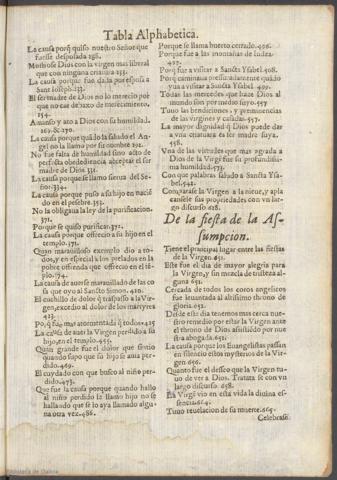 Tabla Alphabetica.
La causa porq̃ quiso nuestro Señor que
fuesse desposada 288.
Mostrose Dios con la virgen mas liberal
que con ninguna criatura 233.
La causa porque fue dada por esposa a
Sant Ioseph.133.
El ser madre de Dios no lo merecio por
que no cae debaxo de merecimiento.
154.
Amanso y ato a Dios con su humildad.
169.& 170.
La causa porque quãdo la saludo el An-
gel no la llamo por su nombre 191.
No fue falta de humildad sino acto de
perfeta obediencia acceptar el ser
madre de Dios 331.
La causa porque se llamo sierua del Se-
ñor.334.
La causa porque puso a su hijo en naciẽ
do en el pesebre.353.
No la obligaua la ley de la purificacion.
371.
Porque se quiso purificar.372.
La causa porque ofrecio a su hijo en el
templo.371.
Quan marauilloso exemplo dio a to-
dos, y en especial a los prelados en la
pobre offrenda que offrecio en el tẽ-
plo.374.
La causa de auerse marauillado de las co
sas que oyo al Sancto Simon.420.
El cuchillo de dolor q̃ traspasso a la Vir
gen, excedio al dolor de los martyres
423.
Porq̃ fue mas atormentada q̃ todos.425
La causa de auer la Virgen perdido a su
hijo, en el templo.455.
Quan grande fue el dolor que sintio
quando supo que su hijo se auia per-
dido.469.
El cuydado con que busco al niño per-
dido.473.
Que fue la causa porque quando hallo
al niño perdido le llamo hijo no se
hallando que se lo aya llamado algu-
na otra vez.486.
Porque se llama huerto cerrado.406.
Porque se llama de las montañas de Iudea.
407.
Porq̃ fue a visitar a Sancta Ysabel.408.
Porq̃ caminaua pressuradamente quãdo
yua a visitar a Sancta Ysabel. 409.
Todas las mercedes que haze Dios al
mundo son por medio suyo.557
Tuuo las bendiciones, y preminencias
de las virgines y casadas.557.
La mayor dignidad q̃ Dios puede dar
a vna criatura es ser madre suya.
558.
Vna de las virtudes que mas agrada a
Dios de la Virgẽ fue su profundissi-
ma humildad.573.
Con que palabras saludo a Sancta Ysa-
bel.542.
Comparase la Virgen a la nieue, y apli
canse le sus propiedades con vn lar-
go discurso 618.
De la fiesta de la As-
sumpcion.
Tiene el principal lugar entre las fiestas
de la Virgen.651.
Este fue el dia de mayor alegria para
la Virgen, y sin mezcla de tristeza al-
guna 651.
Cercada de todos los coros angelicos
fue leuantada al altissimo throno de
gloria.651.
Desde este dia tenemos mas cerca nues-
tro remedio por estar la Virgen ante
el throno de Dios assistiendo por nue
stra abogada.652.
La causa porque los Euangelistas passan
en silencio estos mysterios de la Virge
gen 656.
Quanto fue el desseo que la Virgen tu-
uo de ver a Dios. Tratase se con vn
largo discurso. 658.
La Virgẽ vio en esta vida la diuina es-
sencia.664.
Tuuo reuelacion de su muerte.665.
Celebrase